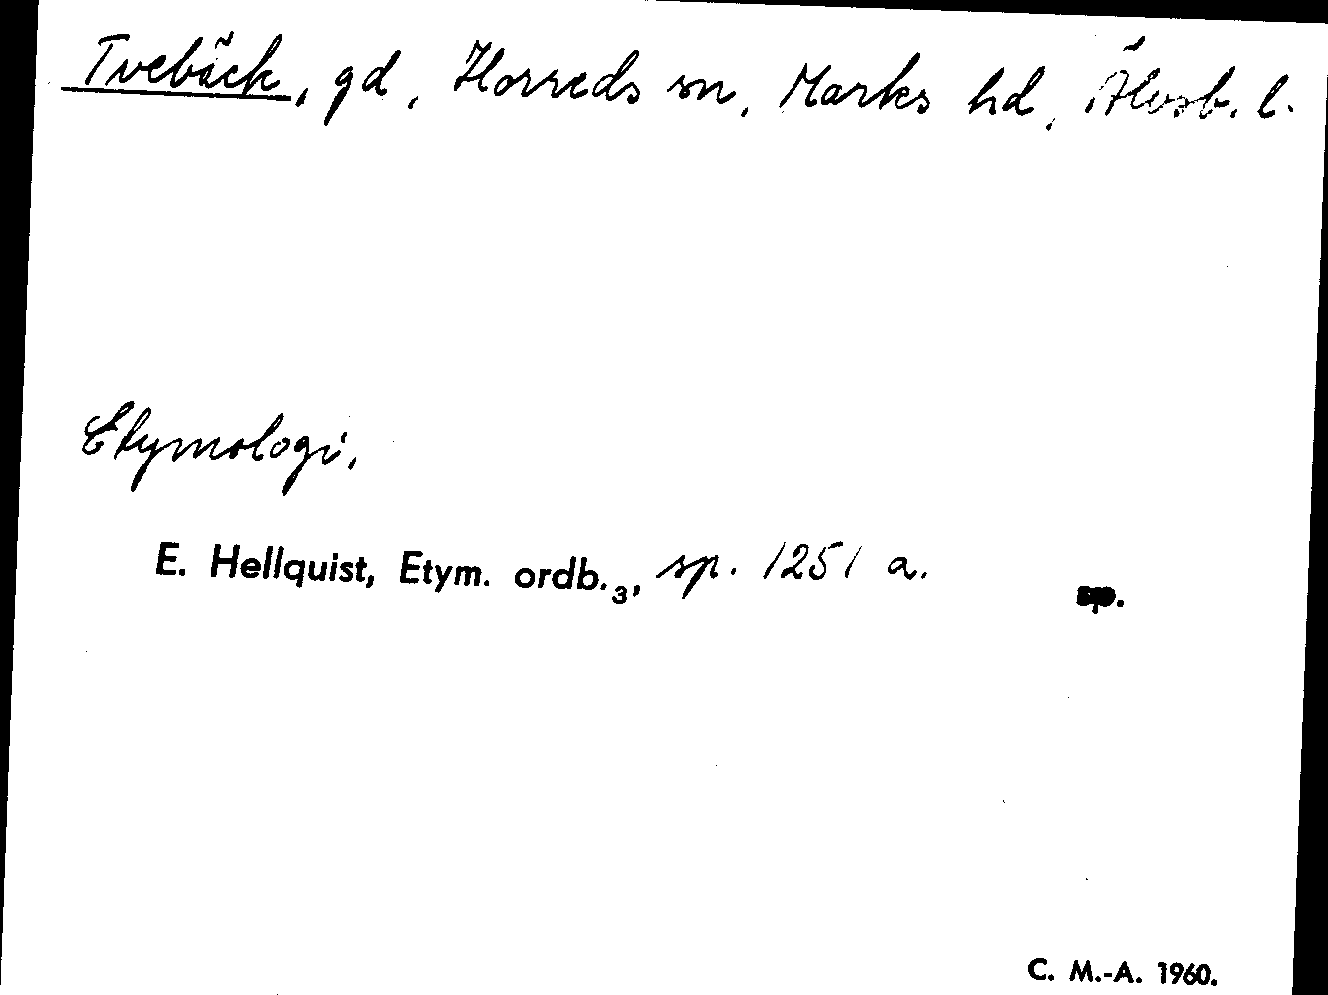 Tvebäck, gd, Horreds sn, Marks hd, Älvsb. l.
Etymologi.
E. Hellquist, Etym. ordb.₃, sp. 1251 a.
sp.
C. M.-A. 1960.